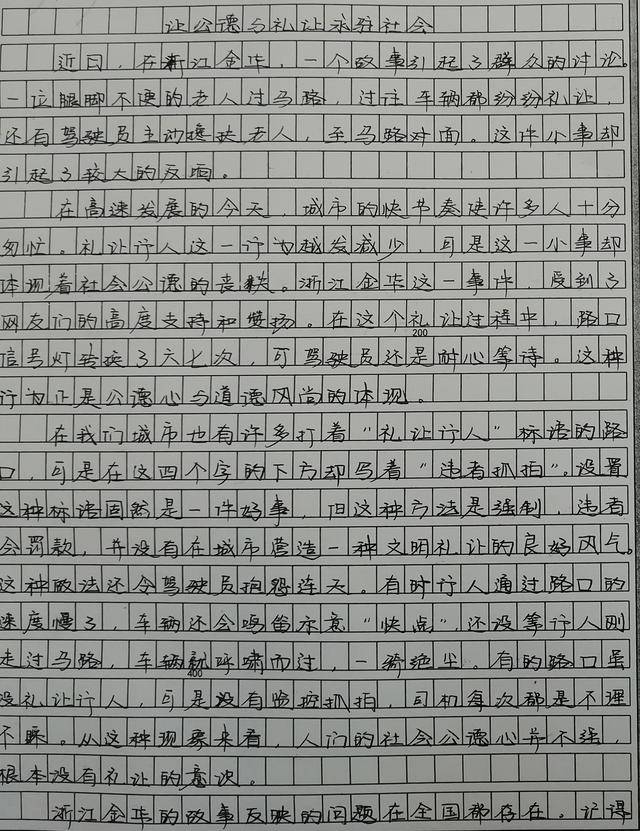 让公德与礼让永驻社会
近日，在浙江金华，一个故事引起了群众的讨论。
一位腿脚不便的老人过马路，过往车辆都纷纷礼让，
还有驾驶员主动搀扶老人，至马路对面。这件小事却
引起了较大的反响。
在高速发展的今天，城市的快节奏使许多人十分
匆忙。礼让行人这一行为越发减少，可是这一小事却
体现着社会公德的丧失。浙江金华这一事件，受到了
网友们的高度支持和赞扬。在这个礼让过程中，路口
200
信号灯转换了六七次，可驾驶员还是耐心等待。这种
行为正是公德心与道德风尚的体现。
在我们城市也有许多打着“礼让行人”标语的路
口，可是在这四个字的下方却写着“违者抓拍”。设置
这种标语固然是一件好事，但这种方法是强制，违者
会罚款，并没有在城市营造一种文明礼让的良好风气。
这种做法还令驾驶员抱怨连天。有时行人通过路口的
速度慢了，车辆还会鸣笛示意“快点”，还没等行人刚
走过马路，车辆就呼啸而过，一骑绝尘。有的路口虽
400
没礼让行人，可是没有监控抓拍，司机每次都是不理
不睬。从这种现象来看，人们的社会公德心并不强，
根本没有礼让的意识。
浙江金华的故事反映的问题在全国都存在。记得